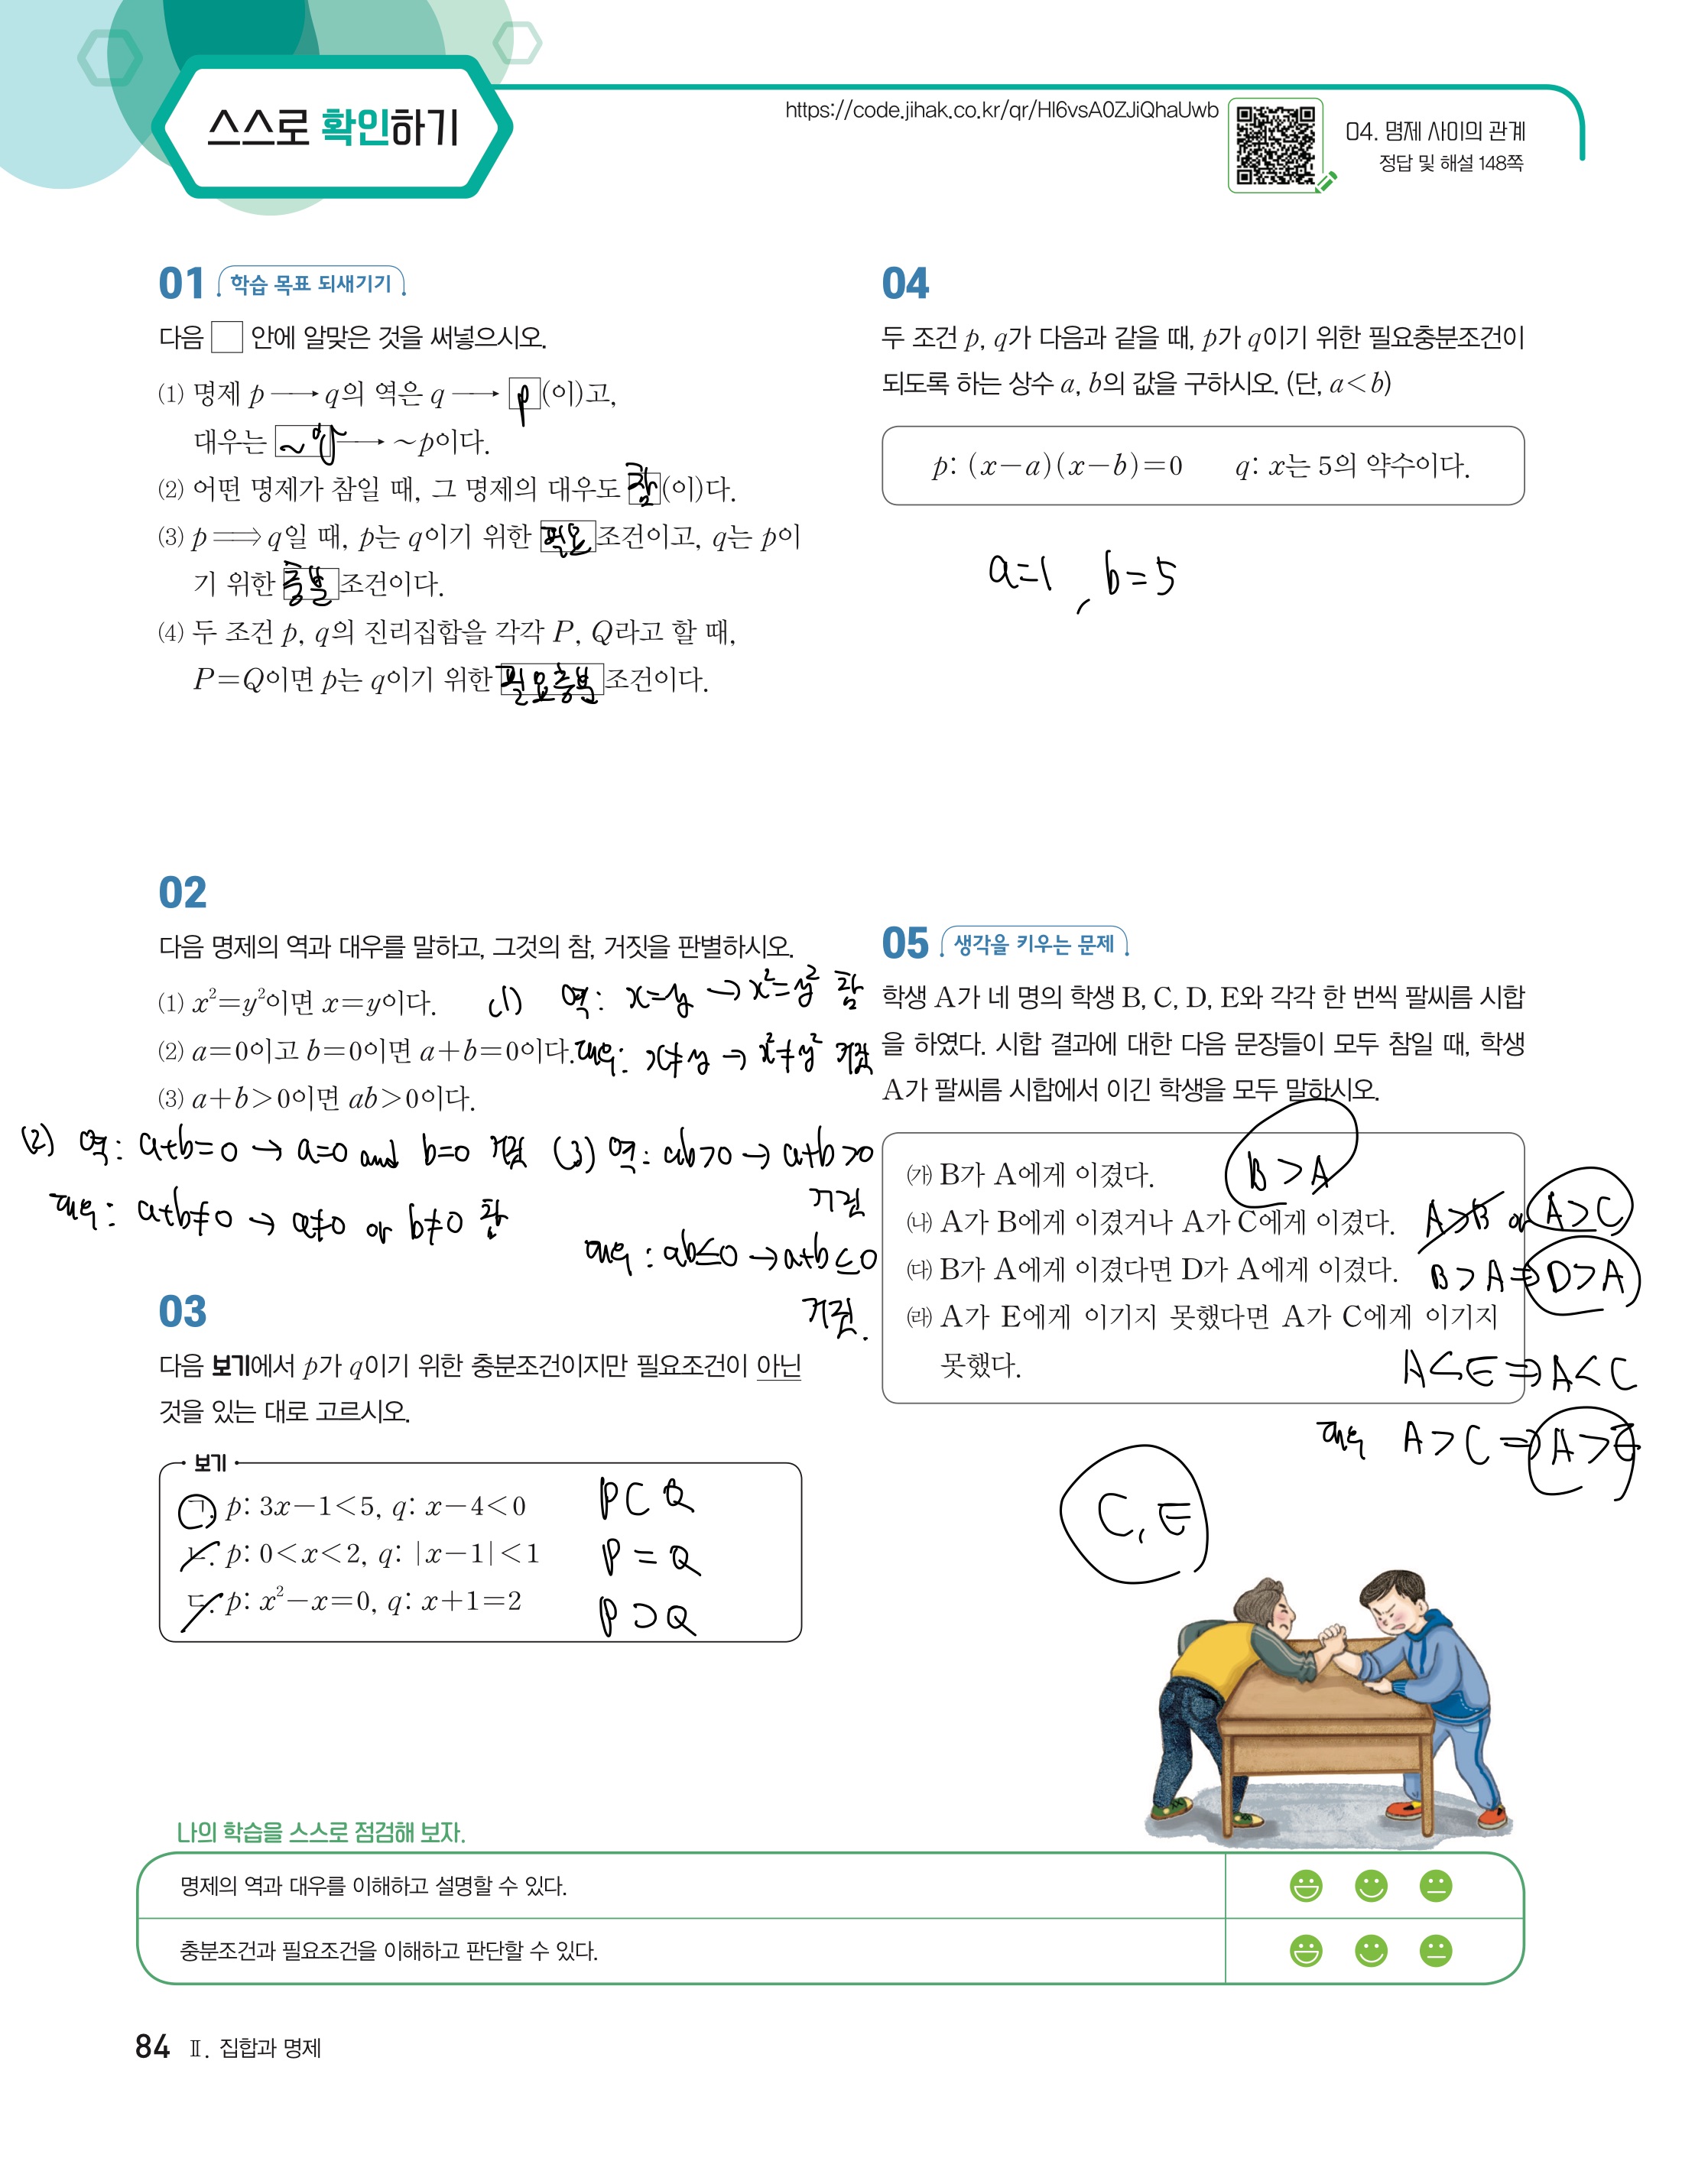 스스로 확인하기
https://code.jihak.co.kr/qr/HI6vsA0ZJiQhaUwb
04. 명제 사이의 관계
정답 및 해설 148쪽
01 학습 목표 되새기기
다음 □ 안에 알맞은 것을 써넣으시오.
⑴ 명제 p ⟶ q의 역은 q ⟶ p(이)고,
대우는 ~q ⟶ ~p이다.
⑵ 어떤 명제가 참일 때, 그 명제의 대우도 참(이)다.
⑶ p ⟹ q일 때, p는 q이기 위한 필요 조건이고, q는 p이
기 위한 충분 조건이다.
⑷ 두 조건 p, q의 진리집합을 각각 P, Q라고 할 때,
P=Q이면 p는 q이기 위한 필요충분 조건이다.
02
다음 명제의 역과 대우를 말하고, 그것의 참, 거짓을 판별하시오.
⑴ x²=y²이면 x=y이다. (1) 역: x=y → x²=y² 참
⑵ a=0이고 b=0이면 a+b=0이다. 대우: x≠y → x²≠y² 거짓
⑶ a+b>0이면 ab>0이다.
(2) 역: a+b=0 → a=0 and b=0 거짓 (3) 역: ab>0 → a+b>0
거짓
대우: a+b≠0 → a≠0 or b≠0 참
대우: ab≤0 → a+b≤0
거짓.
03
다음 보기에서 p가 q이기 위한 충분조건이지만 필요조건이 아닌
것을 있는 대로 고르시오.
보기
ㄱ. p: 3x-1<5, q: x-4<0 P⊂Q
ㄴ. p: 0<x<2, q: |x-1|<1 P=Q
ㄷ. p: x²-x=0, q: x+1=2 P⊃Q
04
두 조건 p, q가 다음과 같을 때, p가 q이기 위한 필요충분조건이
되도록 하는 상수 a, b의 값을 구하시오. (단, a<b)
p: (x-a)(x-b)=0 q: x는 5의 약수이다.
a=1, b=5
05 생각을 키우는 문제
학생 A가 네 명의 학생 B, C, D, E와 각각 한 번씩 팔씨름 시합
을 하였다. 시합 결과에 대한 다음 문장들이 모두 참일 때, 학생
A가 팔씨름 시합에서 이긴 학생을 모두 말하시오.
㈎ B가 A에게 이겼다. B>A
㈏ A가 B에게 이겼거나 A가 C에게 이겼다. A>B or A>C
㈐ B가 A에게 이겼다면 D가 A에게 이겼다. B>A ⇒ D>A
㈑ A가 E에게 이기지 못했다면 A가 C에게 이기지
못했다. A<E ⇒ A<C
대우 A>C ⇒ A>E
C, E
나의 학습을 스스로 점검해 보자.
명제의 역과 대우를 이해하고 설명할 수 있다.
충분조건과 필요조건을 이해하고 판단할 수 있다.
84 Ⅱ. 집합과 명제